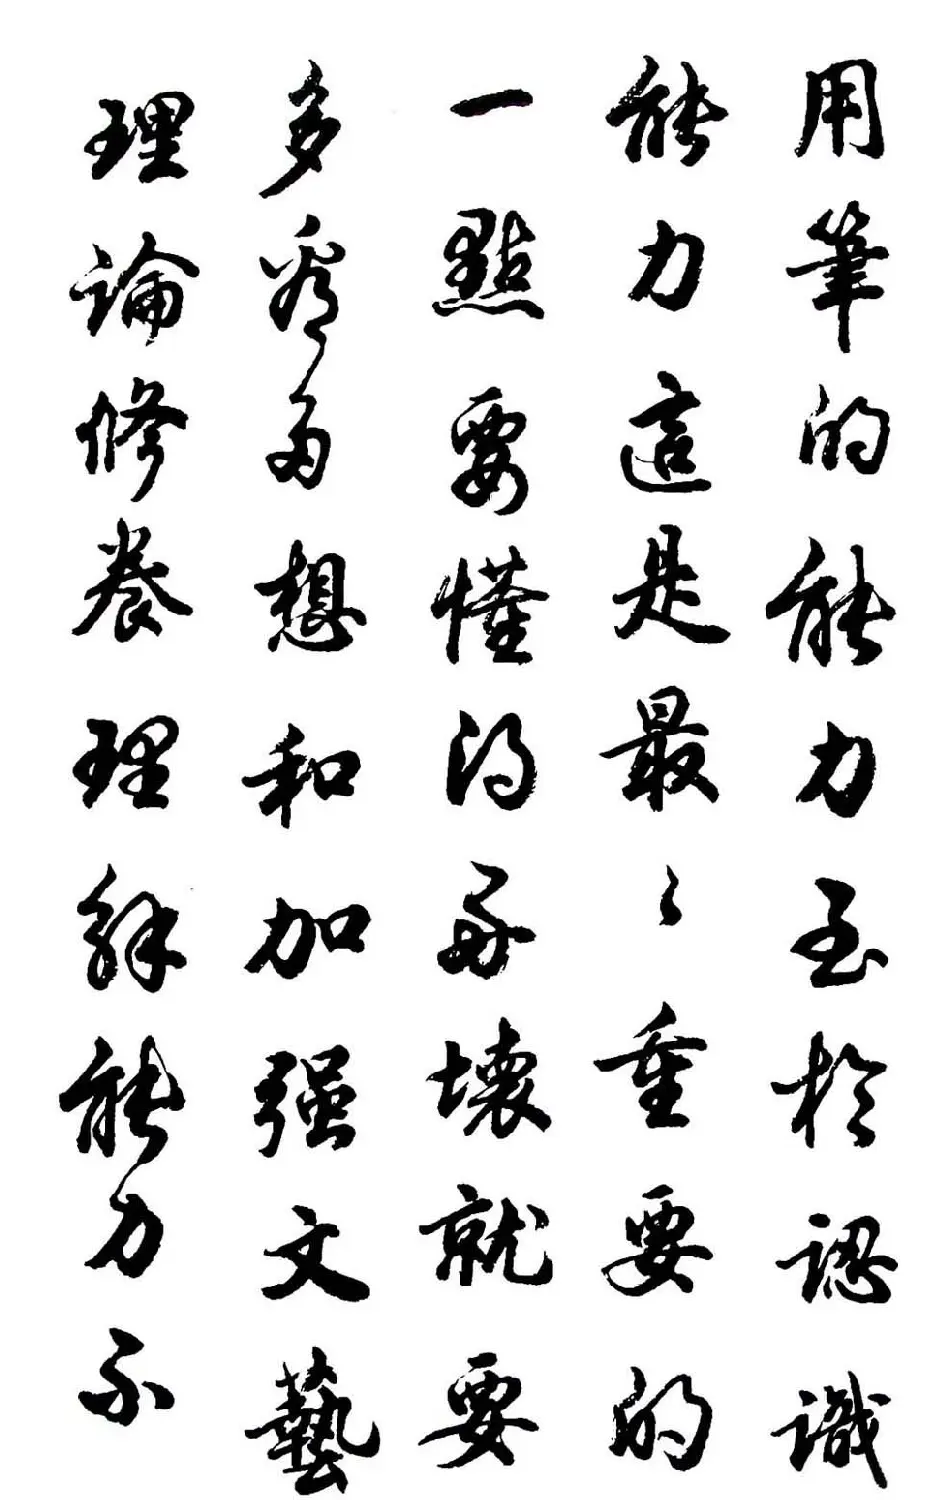 用筆的能力至於認識
能力這是最〻重要的
一點要懂得好壞就要
多看多想和加强文藝
理論修養理解能力不